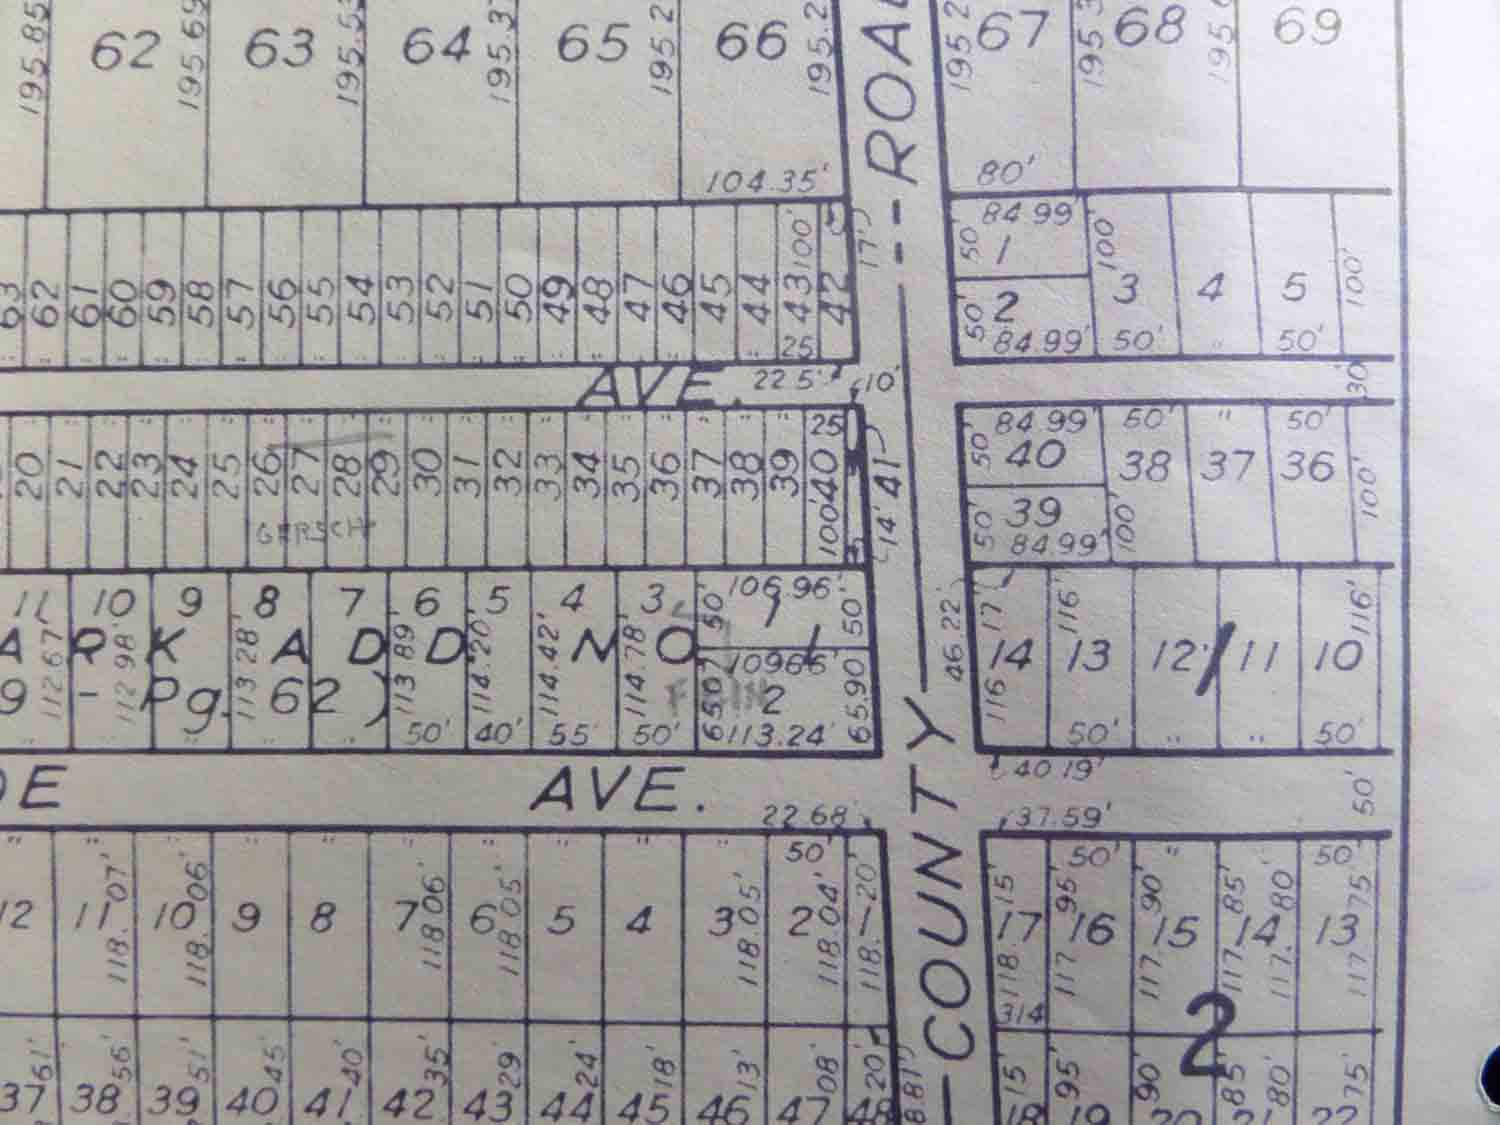 62 63 64 65 66 67 68 69
195.85 195.69 195.53 195.37 195.2 195.2 195.2 195.3
104.35' 80'
ROAD
63 62 61 60 59 58 57 56 55 54 53 52 51 50 49 48 47 46 45 44 43 42
100' 25 17'
84.99' 50 1 100 3 4 5 100'
50' 2 84.99' 50' " 50'
AVE. 22.5' 10' 30'
20 21 22 23 24 25 26 27 28 29 30 31 32 33 34 35 36 37 38 39 40 41
25 100' 14'
GERSCH
84.99' 50' " 50'
50' 40 38 37 36 100'
50' 39 84.99' 100'
11 10 9 8 7 6 5 4 3 1
106.96' 50' 50'
ARK ADDNO
112.67' 112.98' 113.28' 113.89' 114.20' 114.42' 114.78'
109.66' 65.07 2 65.90
9 - Pg. 62)
50' 40' 55' 50' 113.24'
46.22' 17' 116' 116'
14 13 12 1 11 10
116 50' " " 50'
DE AVE. 22.68'
COUNTY
40.19'
37.59' 50'
50' 50' " 50'
12 11 10 9 8 7 6 5 4 3 2 1
118.07' 118.06' 118.06' 118.05' 118.05' 118.04' 118.20'
15' 95' 90' 85' 80' 75'
17 16 15 14 13
118. 117. 117. 117. 117. 117.
314 2
61' 56' 51' 45' 40' 35' 29' 24' 18' 13' 08' 20' 8.81'
37 38 39 40 41 42 43 44 45 46 47 48
15' 95' 90' 85' 80' 75'
18 19 20 21 22